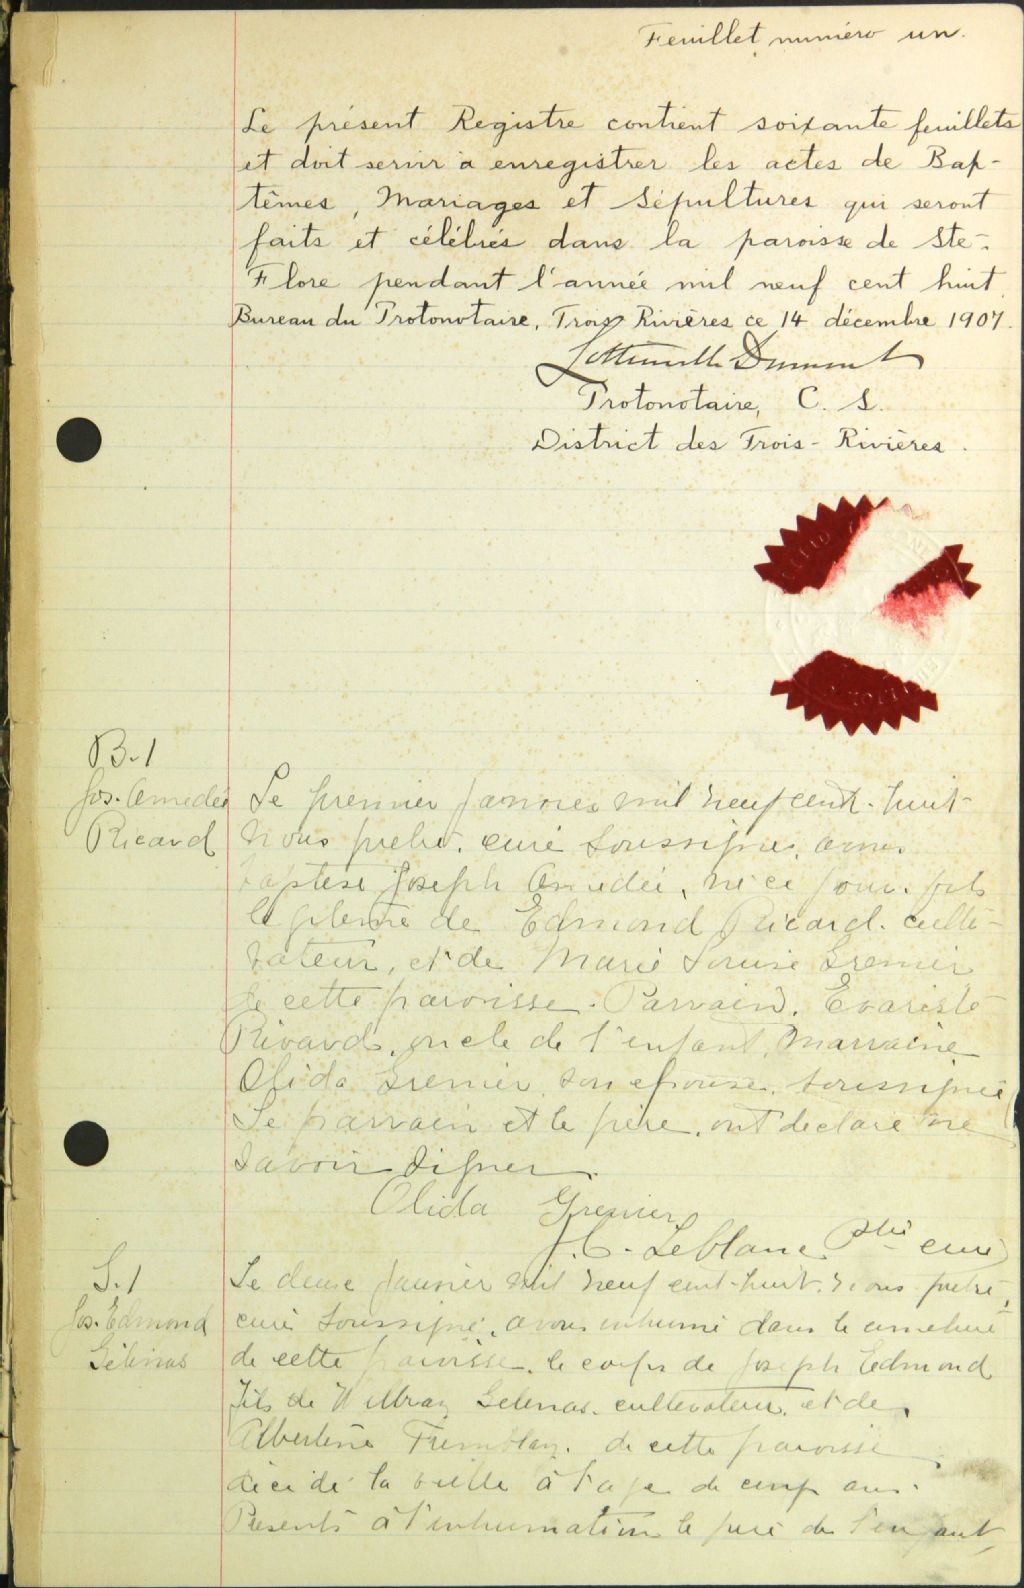 Feuillet numéro un.
Le présent Registre contient soixante feuillets
et doit servir à enregistrer les actes de Bap-
têmes, Mariages et Sépultures qui seront
faits et célébrés dans la paroisse de Ste-
Flore pendant l'année mil neuf cent huit.
Bureau du Protonotaire, Trois Rivières ce 14 décembre 1907.
Protonotaire, C. S.
District des Trois-Rivières.
B.1
Jos. Amedée
Ricard
Le premier janvier mil neuf cent-huit
Nous prêtre, curé soussigné, avons
baptisé Joseph Amedée, né ce jour, fils
légitime de Edmond Ricard, culti-
vateur, et de Marie Louise Grenier
de cette paroisse. Parrain, Evariste
Rivard, oncle de l'enfant, Marraine
Olida Grenier, son épouse, soussignée
Le parrain et le père, ont déclaré ne
savoir signer.
Olida Grenier
J.C. Leblanc Ptre curé
S.1
Jos. Edmond
Gélinas
Le deux janvier mil neuf cent-huit, nous prêtre,
curé soussigné, avons inhumé dans le cimetière
de cette paroisse, le corps de Joseph Edmond
fils de Gelinas, cultivateur, et de
Albertine Tremblay, de cette paroisse
décédé la veille à l'age de cinq ans.
Présents à l'inhumation le père de l'enfant,